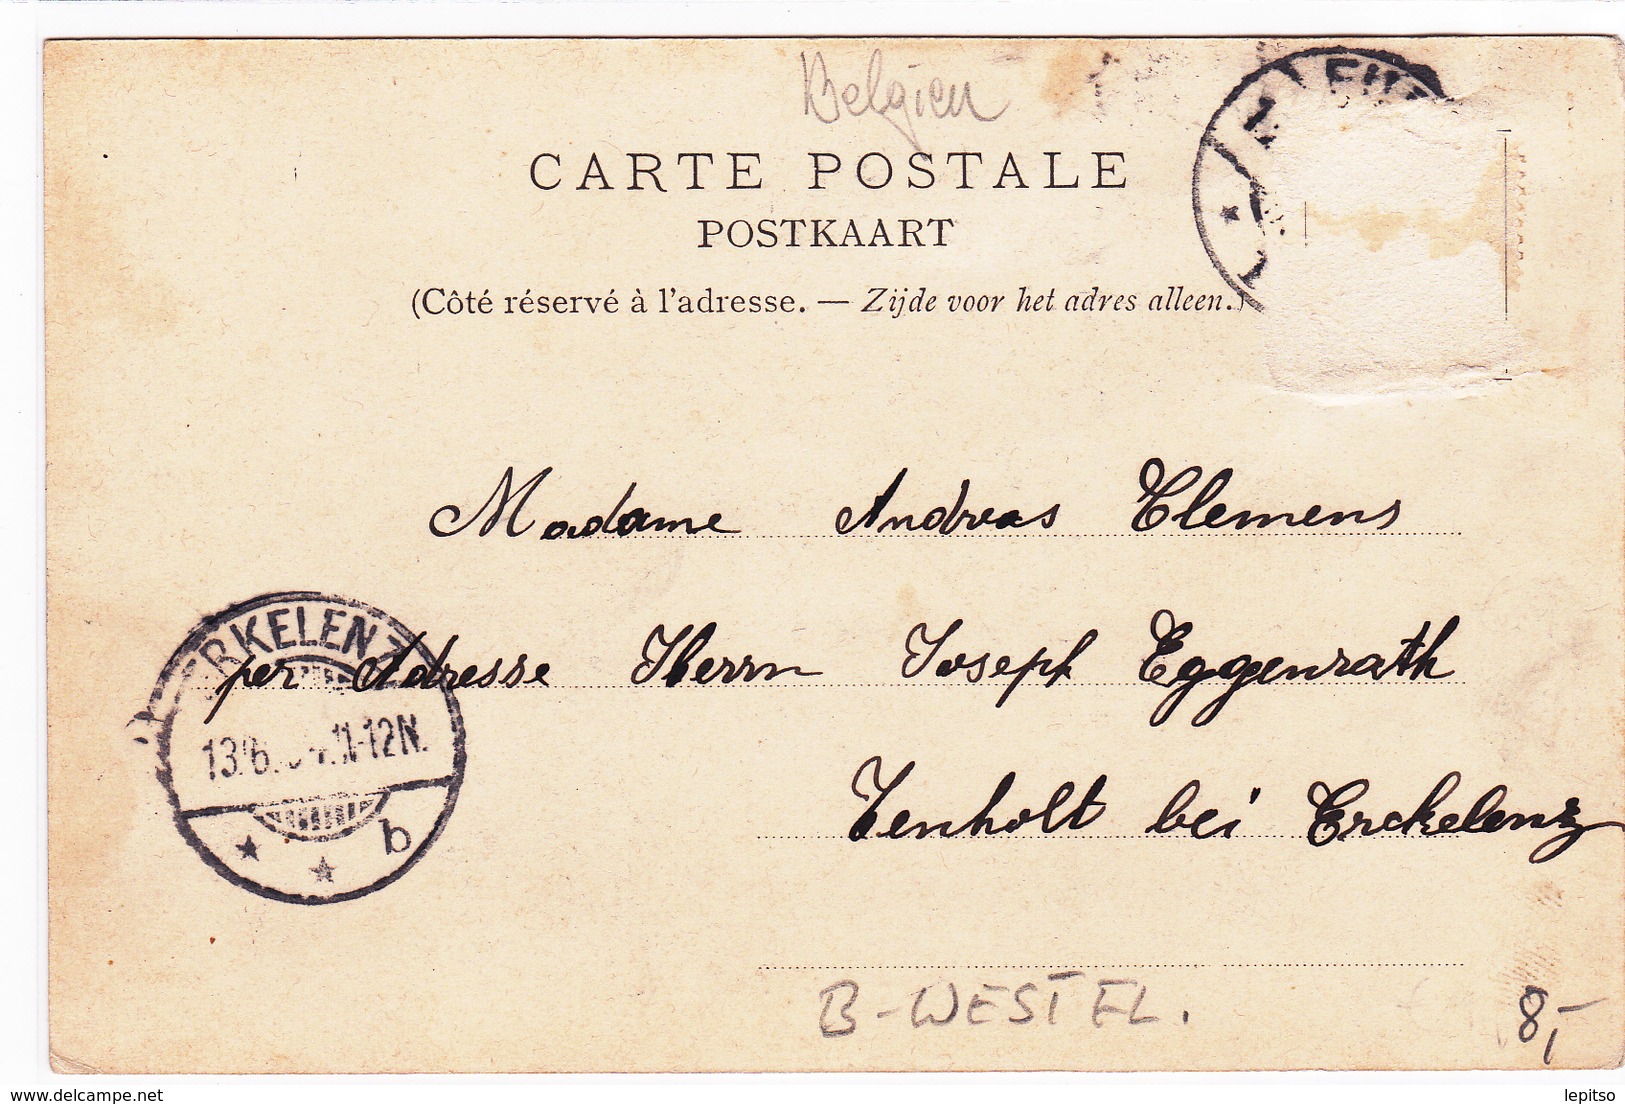 Belgien
CARTE POSTALE
POSTKAART
(Côté réservé à l'adresse. — Zijde voor het adres alleen.)
Madame Andreas Clemens
ERKELENZ
per Adresse Herrn Joseph Eggenrath
13.6. 11-12N.
Tenholt bei Erckelenz
b
B-WESTEL.
8,-
delcampe.net
lepitso